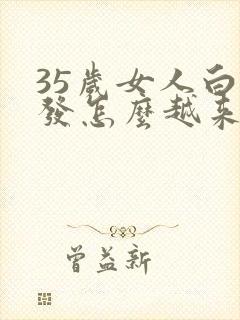 35歲女人白
發怎麼越來
曾益新